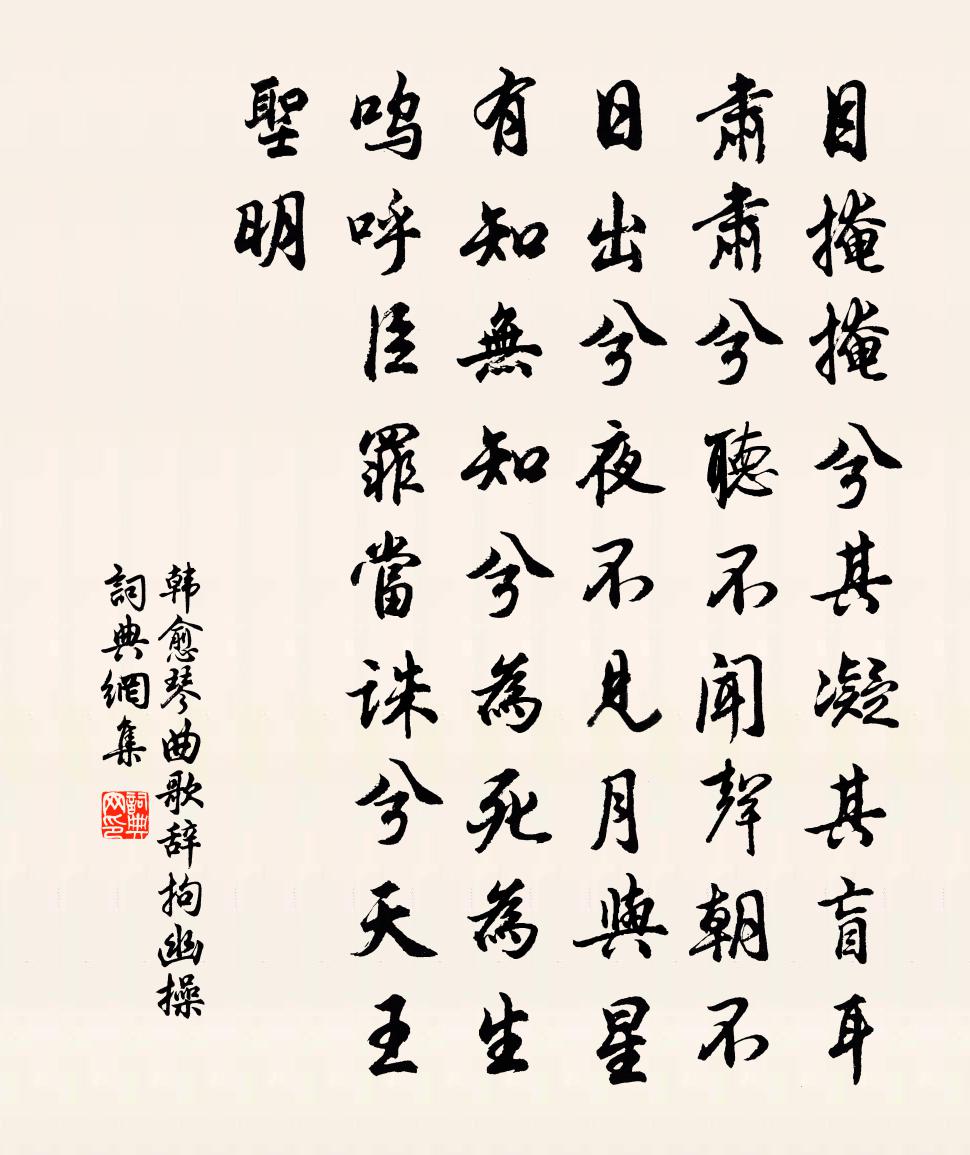 目掩掩兮其凝其盲耳
肅肅兮聽不聞聲朝不
日出兮夜不見月與星
有知無知兮為死為生
嗚呼臣罪當誅兮天王
聖明
韩愈琴曲歌辞拘幽操
詞典網集
詞典
网印